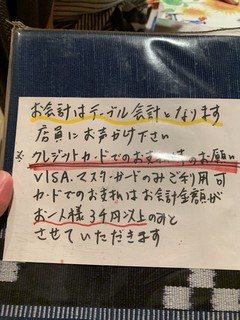 お会計はテーブル会計となります
店員にお声かけ下さい
※クレジットカードでのお支払い のお願い
VISA、マスターカードのみご利用可
カードでのお支払いはお会計金額が
お一人様3千円以上のみと
させていただきます